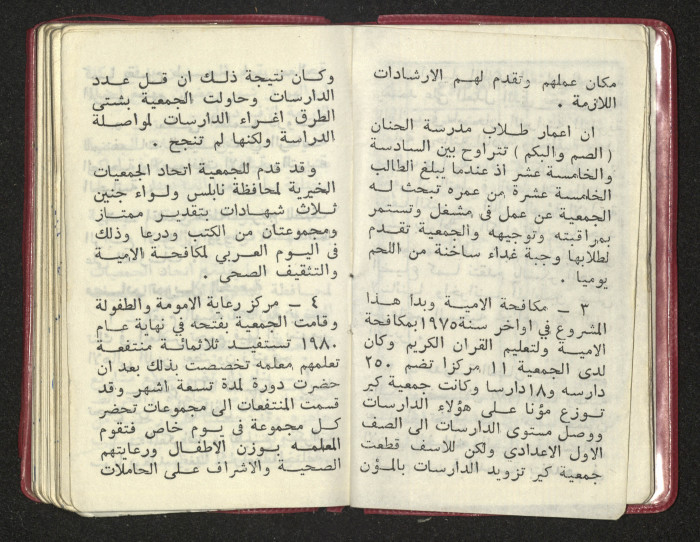 مكان عملهم وتقدم لهم الارشادات
اللازمة .
ان اعمار طلاب مدرسة الحنان
( الصم والبكم ) تتراوح بين السادسة
والخامسة عشر اذ عندما يبلغ الطالب
الخامسة عشرة من عمره تبحث له
الجمعية عن عمل في مشغل وتستمر
بمراقبته وتوجيهه والجمعية تقدم
لطلابها وجبة غداء ساخنة من اللحم
يوميا .
٣ ــ مكافحة الامية وبدا هذا
المشروع في اواخر سنة ١٩٧٥ بمكافحة
الامية ولتعليم القران الكريم وكان
لدى الجمعية ١١ مركزا تضم ٢٥٠
دارسه و١٨ دارسا وكانت جمعية كير
توزع مؤنا على هؤلاء الدارسات
ووصل مستوى الدارسات الى الصف
الاول الاعدادي ولكن للاسف قطعت
جمعية كير تزويد الدارسات بالمؤن
وكان نتيجة ذلك ان قل عدد
الدارسات وحاولت الجمعية بشتى
الطرق اغراء الدارسات لمواصلة
الدراسة ولكنها لم تنجح .
وقد قدم للجمعية اتحاد الجمعيات
الخيرية لمحافظة نابلس ولواء جنين
ثلاث شهادات بتقدير ممتاز
ومجموعتان من الكتب ودرعا وذلك
في اليوم العربي لمكافحة الامية
والتثقيف الصحي .
٤ ــ مركز رعاية الامومة والطفولة
وقامت الجمعية بفتحه في نهاية عام
١٩٨٠ تستفيد ثلاثمائة منتفعة
تعلمهم معلمه تخصصت بذلك بعد ان
حضرت دورة لمدة تسعة اشهر وقد
قسمت المنتفعات الى مجموعات تحضر
كل مجموعة في يوم خاص فتقوم
المعلمه بوزن الاطفال ورعايتهم
الصحية والاشراف على الحاملات